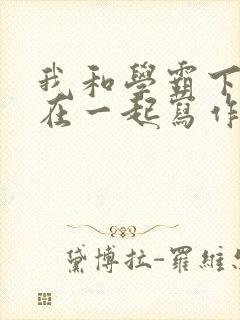 我和學霸下
在一起寫作
黛博拉-羅維